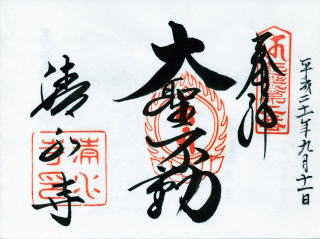 平成二十一年九月十一日
奉拝
大聖不動
清水寺